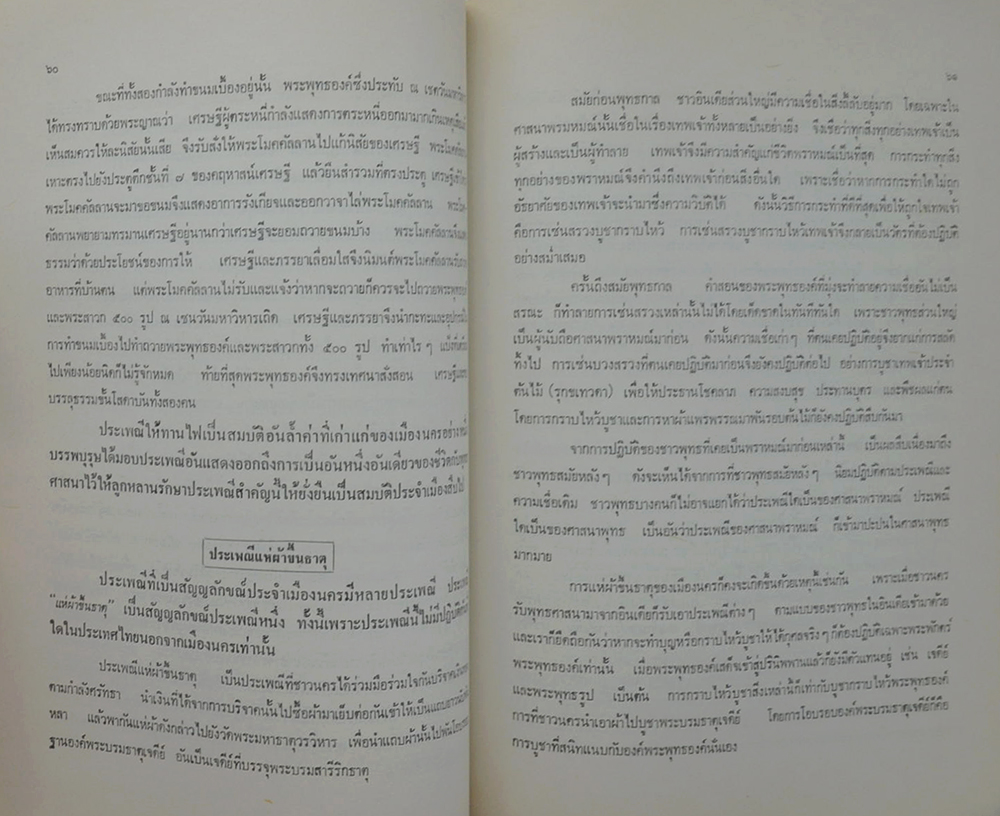 ๖๐
ขณะที่ทั้งสองกำลังทำขนมเบื้องอยู่นั้น พระพุทธองค์ซึ่งประทับ ณ เชตวันมหาวิหาร
ได้ทรงทราบด้วยพระญาณว่า เศรษฐีผู้ตระหนี่กำลังแสดงการตระหนี่ออกมามากเกินเหตุ
เห็นสมควรให้ละนิสัยนั้นเสีย จึงรับสั่งให้พระโมคคัลลานไปแก้นิสัยของเศรษฐี
เหาะตรงไปยังประตูตึกชั้นที่ ๗ ของคฤหาสน์เศรษฐี แล้วยืนสำรวมที่ตรงประตู
พระโมคคัลลานจะมาขอขนมจึงแสดงอาการรังเกียจและออกวาจาไล่พระโมคคัลลาน
คัลลานพยายามทรมานเศรษฐีอยู่นานกว่าเศรษฐีจะยอมถวายขนมบ้าง พระโมคคัลลาน
ธรรมว่าด้วยประโยชน์ของการให้ เศรษฐีและภรรยาเลื่อมใสจึงนิมนต์พระโมคคัลลาน
อาหารที่บ้านตน แต่พระโมคคัลลานไม่รับและแจ้งว่าหากจะถวายก็ควรจะไปถวาย
และพระสาวก ๕๐๐ รูป ณ เชนวันมหาวิหารเถิด เศรษฐีและภรรยาจึงนำกะทะและ
การทำขนมเบื้องไปทำถวายพระพุทธองค์และพระสาวกทั้ง ๕๐๐ รูป ทำเท่าไร ๆ
ไปเพียงน้อยนิดก็ไม่รู้จักหมด ท้ายที่สุดพระพุทธองค์จึงทรงเทศนาสั่งสอน
บรรลุธรรมขั้นโสดาบันทั้งสองคน
ประเพณีให้ทานไฟเป็นสมบัติอันล้ำค่าที่เก่าแก่ของเมืองนครอย่าง
บรรพบุรุษได้มอบประเพณีอันแสดงออกถึงการเป็นอันหนึ่งอันเดียวของชีวิตกับ
ศาสนาไว้ให้ลูกหลานรักษาประเพณีสำคัญนี้ให้ยั่งยืนเป็นสมบัติประจำเมืองสืบไป
ประเพณีแห่ผ้าขึ้นธาตุ
ประเพณีที่เป็นสัญญลักขณ์ประจำเมืองนครมีหลายประเพณี
"แห่ผ้าขึ้นธาตุ" เป็นสัญญลักขณ์ประเพณีหนึ่ง ทั้งนี้เพราะประเพณีนี้ไม่มีปฏิบัติ
ใดในประเทศไทยนอกจากเมืองนครเท่านั้น
ประเพณีแห่ผ้าขึ้นธาตุ เป็นประเพณีที่ชาวนครได้ร่วมมือร่วมใจกันบริจาค
ตามกำลังศรัทธา นำเงินที่ได้จากการบริจาคนั้นไปซื้อผ้ามาเย็บต่อกันเข้าให้เป็นแถบยาว
หลา แล้วพากันแห่ผ้าดังกล่าวไปยังวัดพระมหาธาตุวรวิหาร เพื่อนำแถบผ้านั้นไปพัน
ฐานองค์พระบรมธาตุเจดีย์ อันเป็นเจดีย์ที่บรรจุพระบรมสารีริกธาตุ
๖๑
สมัยก่อนพุทธกาล ชาวอินเดียส่วนใหญ่มีความเชื่อในสิ่งลี้ลับอยู่มาก โดยเฉพาะใน
ศาสนาพรหมหมณ์นั้นเชื่อในเรื่องเทพเจ้าทั้งหลายเป็นอย่างยิ่ง จึงเชื่อว่าทุกสิ่งทุกอย่างเทพเจ้าเป็น
ผู้สร้างและเป็นผู้ทำลาย เทพเจ้าจึงมีความสำคัญแก่ชีวิตพราหมณ์เป็นที่สุด การกระทำทุกสิ่ง
ทุกอย่างของพราหมณ์จึงคำนึงถึงเทพเจ้าก่อนสิ่งอื่นใด เพราะเชื่อว่าหากการกระทำใดไม่ถูก
อัธยาศัยของเทพเจ้าจะนำมาซึ่งความวิบัติได้ ดังนั้นวิธีการกระทำที่ดีที่สุดเพื่อให้ถูกใจเทพเจ้า
คือการเซ่นสรวงบูชากราบไหว้ การเซ่นสรวงบูชากราบไหว้เทพเจ้าจึงกลายเป็นวัตรที่ต้องปฏิบัติ
อย่างสม่ำเสมอ
ครั้นถึงสมัยพุทธกาล คำสอนของพระพุทธองค์ที่มุ่งจะทำลายความเชื่ออันไม่เป็น
สรณะ ก็ทำลายการเซ่นสรวงเหล่านั้นไม่ได้โดยเด็ดขาดในทันทีทันใด เพราะชาวพุทธส่วนใหญ่
เป็นผู้นับถือศาสนาพราหมณ์มาก่อน ดังนั้นความเชื่อเก่า ๆ ที่ตนเคยปฏิบัติอยู่จึงยากแก่การสลัด
ทิ้งไป การเซ่นบวงสรวงที่ตนเคยปฏิบัติมาก่อนจึงยังคงปฏิบัติต่อไป อย่างการบูชาเทพเจ้าประจำ
ต้นไม้ (รุกขเทวดา) เพื่อให้ประธานโชคลาภ ความสงบสุข ประทานบุตร และพืชผลแก่ตน
โดยการกราบไหว้บูชาและการหาผ้าแพรพรรณมาพันรอบต้นไม้ก็ยังคงปฏิบัติสืบกันมา
จากการปฏิบัติของชาวพุทธที่เคยเป็นพราหณ์มาก่อนเหล่านี้ เป็นผลสืบเนื่องมาถึง
ชาวพุทธสมัยหลัง ๆ ดังจะเห็นได้จากการที่ชาวพุทธสมัยหลัง ๆ นิยมปฏิบัติตามประเพณีและ
ความเชื่อเดิม ชาวพุทธบางคนก็ไม่อาจแยกได้ว่าประเพณีใดเป็นของศาสนาพราหมณ์ ประเพณี
ใดเป็นของศาสนาพุทธ เป็นอันว่าประเพณีของศาสนาพราหมณ์ ก็เข้ามาปะปนในศาสนาพุทธ
มากมาย
การแห่ผ้าขึ้นธาตุของเมืองนครก็คงจะเกิดขึ้นด้วยเหตุนี้เช่นกัน เพราะเมื่อชาวนคร
รับพุทธศาสนามาจากอินเดียก็รับเอาประเพณีต่าง ๆ ตามแบบของชาวพุทธในอินเดียเข้ามาด้วย
และเราก็ยึดถือกันว่าหากจะทำบุญหรือกราบไหว้บูชาให้ได้กุศลจริง ๆ ก็ต้องปฏิบัติเฉพาะพระพักตร์
พระพุทธองค์เท่านั้น เมื่อพระพุทธองค์เสด็จเข้าสู่ปรินิพพานแล้วก็ยังมีตัวแทนอยู่ เช่น เจดีย์
และพระพุทธรูป เป็นต้น การกราบไหว้บูชาสิ่งเหล่านี้ก็เท่ากับบูชากราบไหว้พระพุทธองค์
การที่ชาวนครนำเอาผ้าไปบูชาพระบรมธาตุเจดีย์ โดยการโอบรอบองค์พระบรมธาตุเจดีย์ก็คือ
การบูชาที่สนิทแนบกับองค์พระพุทธองค์นั่นเอง